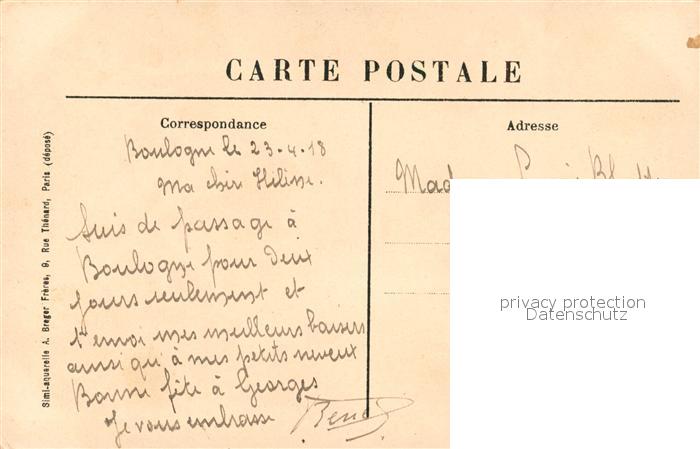 CARTE POSTALE
Correspondance
Adresse
Boulogne le 23-4-18
Ma cher Hélène.
Suis de passage à
Boulogne pour deux
jours seulement et
t'envoi mes meilleurs baisers
ainsi qu'à mes petits neveux
Bonne fête à Georges
Je vous embrasse
Mad
privacy protection
Datenschutz
Simi-aquarelle A. Breger Frères, 9, Rue Thénard, Paris (déposé)